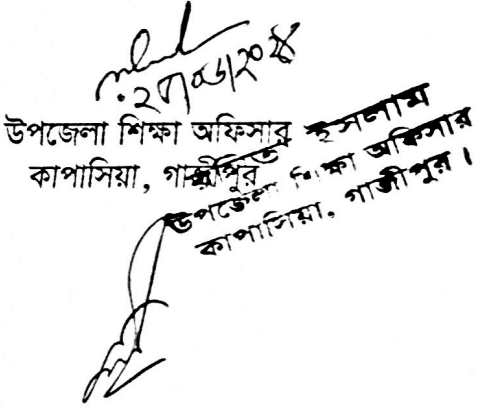 উপজেলা শিক্ষা অফিসার
কাপাসিয়া, গাজীপুর
ইসলাম
উপজেলা শিক্ষা অফিসার
কাপাসিয়া, গাজীপুর।